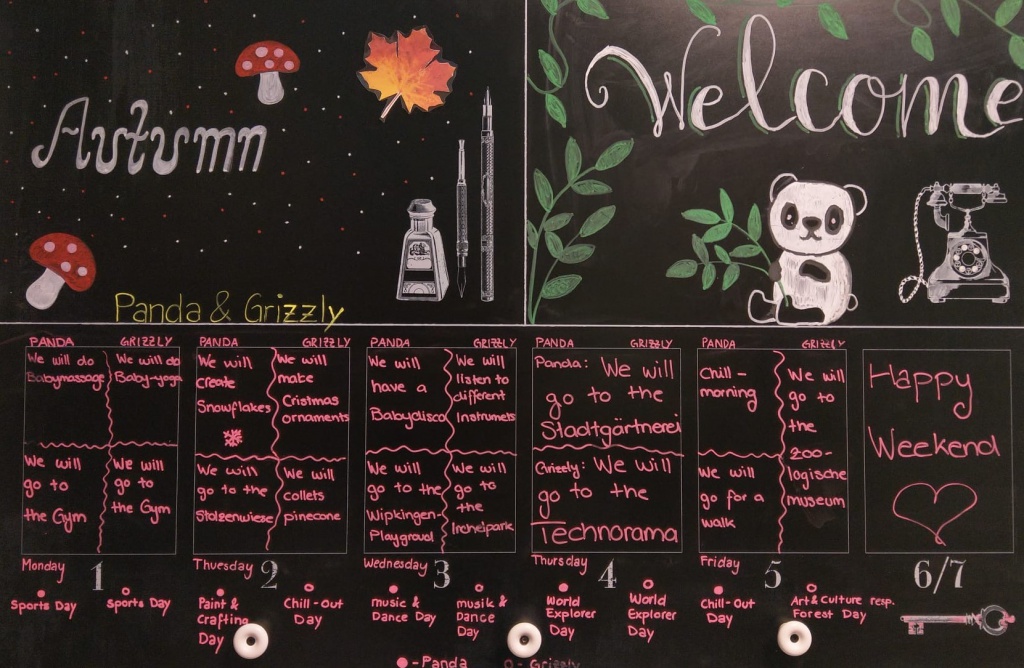 Autumn
Panda & Grizzly
Welcome
PANDA GRIZZLY
We will do
Babymassage
We will do
Baby-yoga
We will
go to
the Gym
We will
go to
the Gym
Monday 1
Sports Day
Sports Day
PANDA GRIZZLY
We will
create
Snowflakes
We will
make
Cristmas
ornaments
We will
go to the
Stolzenwiese
We will
collets
pinecone
Thuesday 2
Paint &
Crafting
Day
Chill-Out
Day
PANDA GRIZZLY
We will
have a
Babydisco
We will
listen to
different
Instrumets
We will
go to the
Wipkingen-
Playgroud
We will
go to
the
Irchelpark
Wednesday 3
music &
Dance Day
musik &
Dance
Day
PANDA GRIZZLY
Panda: We will
go to the
Stadtgärtnerei
Grizzly: We will
go to the
Technorama
Thursday 4
World
Explorer
Day
World
Explorer
Day
PANDA GRIZZLY
Chill-
morning
We will
go for a
walk
We will
go to
the
zoo-
logische
museum
Friday 5
Chill-Out
Day
Art & Culture resp.
Forest Day
Happy
Weekend
6/7
- Panda - Grizzly